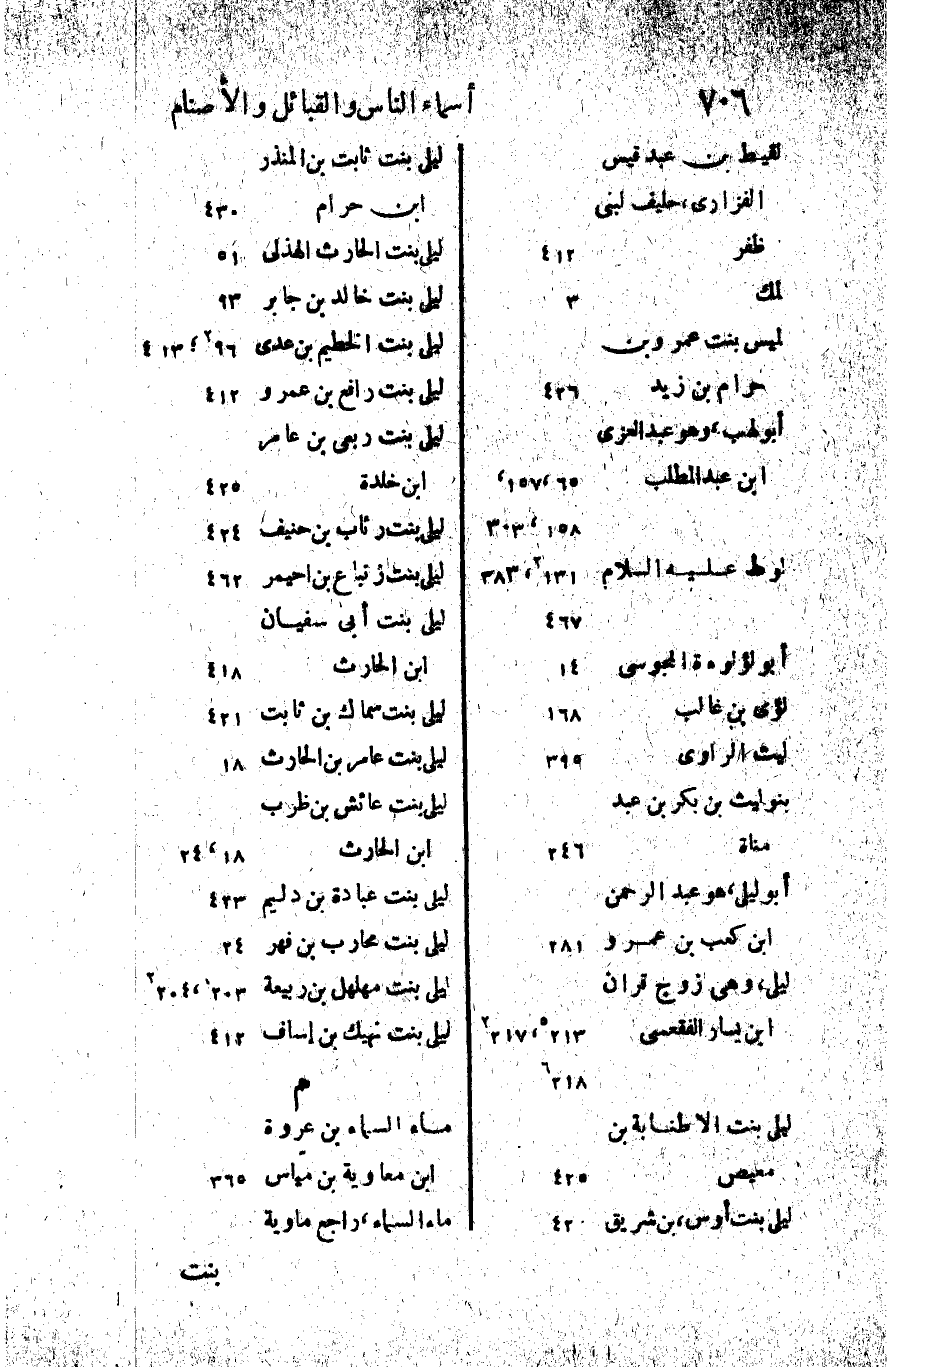 ٧٠٦
أسماء الناس والقبائل والأصنام
لقيط بن عبد قيس
الفزارى، حليف لبنى
ظفر ٤١٢
لمك ٣
لميس بنت عمرو بن
حرام بن زيد ٤٢٦
أبو لهب، وهو عبد العزى
ابن عبد المطلب ٦٥، ١٥٧،
١٥٨، ٣٠٣
لوط عليه السلام ١٣١٢، ٣٨٣
٤٦٧
أبو لؤلوءة المجوسى ١٤
لؤى بن غالب ١٦٨
ليث الراوى ٣٩٥
بنو ليث بن بكر بن عبد
مناة ٢٤٦
أبو ليلى، هو عبد الرحمن
ابن كعب بن عمرو ٢٨١
ليلى، وهى زوج قران
ابن يسار الفقعسى ٢١٣٥، ٢١٧٢
٢١٨٦
ليلى بنت الاطنابة بن
معيص ٤٢٥
ليلى بنت أوس، بن شريق ٤٢٠
ليلى بنت ثابت بن المنذر
ابن حرام ٤٣٠
ليلى بنت الحارث الهذلى ٥١
ليلى بنت خالد بن جابر ٩٣
ليلى بنت الخطيم بن عدى ٩٦٢، ٤١٣
ليلى بنت رافع بن عمرو ٤١٢
ليلى بنت ربعى بن عامر
ابن خلدة ٤٢٥
ليلى بنت رئاب بن حنيف ٤٢٤
ليلى بنت زنباع بن احيمر ٤٦٢
ليلى بنت أبى سفيان
ابن الحارث ٤١٨
ليلى بنت سماك بن ثابت ٤٢١
ليلى بنت عامر بن الحارث ١٨
ليلى بنت عائش بن ظرب
ابن الحارث ١٨، ٢٤
ليلى بنت عبادة بن دليم ٤٢٣
ليلى بنت محارب بن فهر ٢٤
ليلى بنت مهلهل بن ربيعة ٢٠٣، ٢٠٤٢
ليلى بنت نهيك بن إساف ٤١٢
م
ماء السماء بن عروة
ابن معاوية بن مياس ٣٦٥
ماء السماء، راجع ماوية
بنت